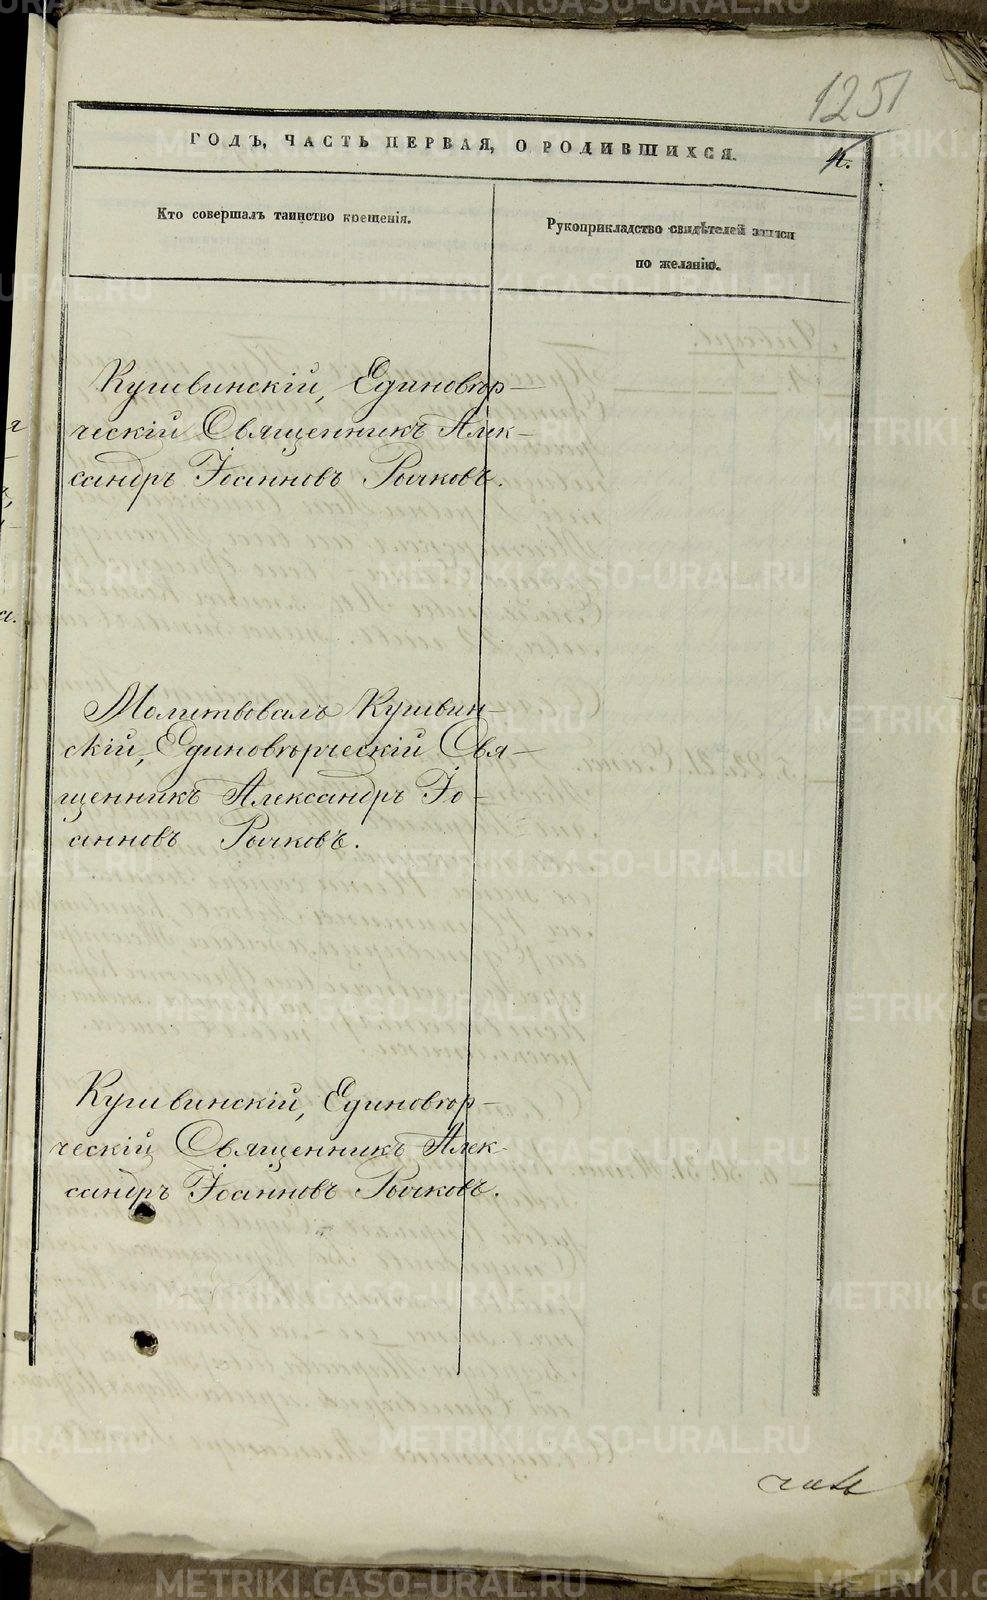 1251
ГОДЪ, ЧАСТЬ ПЕРВАЯ, О РОДИВШИХСЯ.
4.
Кто совершалъ таинство крещенія.
Рукоприкладство свидѣтелей записи
по желанію.
Кушвинскій, Единовѣр-
ческій Священникъ Алек-
сандръ Іоанновъ Рычковъ.
Молитвовалъ Кушвин-
скій, Единовѣрческій Свя-
щенникъ Александръ Іо-
анновъ Рычковъ.
Кушвинскій, Единовѣр-
ческій Священникъ Алек-
сандръ Іоанновъ Рычковъ.
METRIKI.GASO-URAL.RU